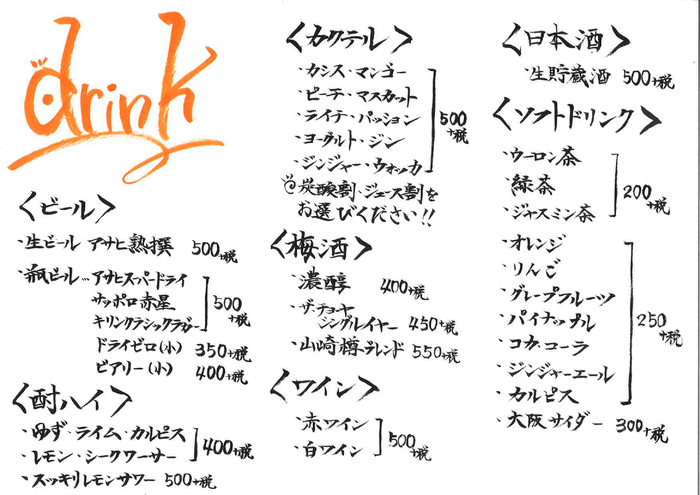 drink
〈ビール〉
・生ビール アサヒ熟撰 500+税
・瓶ビール…アサヒスーパードライ
サッポロ赤星
キリンクラシックラガー
500+税
ドライゼロ(小) 350+税
ビアリー(小) 400+税
〈酎ハイ〉
・ゆず・ライム・カルピス
・レモン・シークワーサー
400+税
・スッキリレモンサワー 500+税
〈カクテル〉
・カシス・マンゴー
・ピーチ・マスカット
・ライチ・パッション
・ヨーグルト・ジン
・ジンジャー・ウォッカ
500+税
炭酸割・ジュース割を
お選びください!!
〈梅酒〉
・濃醇 400+税
・ザ・チョーヤ
シングルイヤー 450+税
・山崎樽ブレンド 550+税
〈ワイン〉
・赤ワイン
・白ワイン
500+税
〈日本酒〉
・生貯蔵酒 500+税
〈ソフトドリンク〉
・ウーロン茶
・緑茶
・ジャスミン茶
200+税
・オレンジ
・りんご
・グレープフルーツ
・パイナップル
・コカ・コーラ
・ジンジャーエール
・カルピス
250+税
・大阪サイダー 300+税